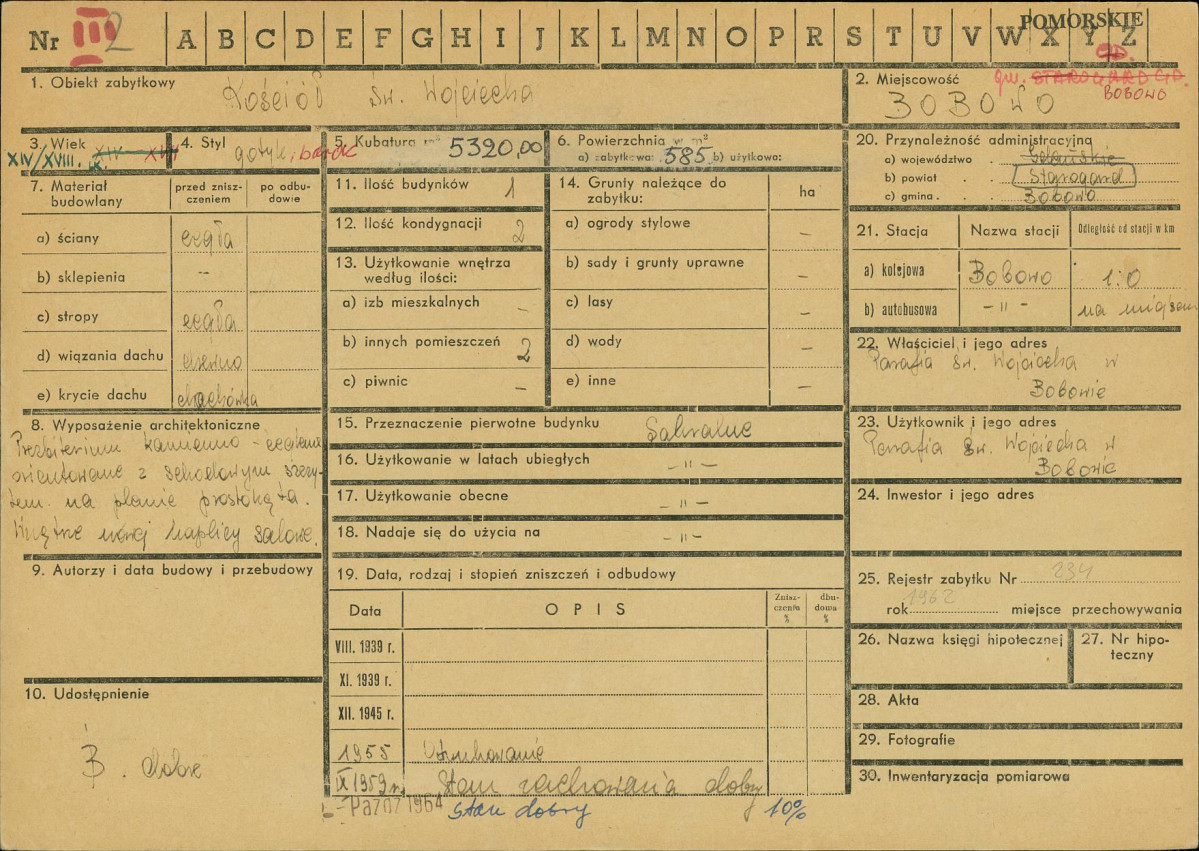 POMORSKIE
Nr III 2 A B C D E F G H I J K L M N O P R S T U V W X Y Z
1. Obiekt zabytkowy
Kościół św. Wojciecha
2. Miejscowość
gm. STAROGARD GD.
BOBOWO
BOBOWO
3. Wiek
XIV XVII
XIV/XVIII. w.
4. Styl
gotyk, barok
5. Kubatura m³ 5320,00
6. Powierzchnia w m²
a) zabytkowa: 585 b) użytkowa:
7. Materiał budowlany
przed zniszczeniem
po odbudowie
a) ściany cegła
b) sklepienia –
c) stropy cegła
d) wiązania dachu drewno
e) krycie dachu dachówka
8. Wyposażenie architektoniczne
Prezbiterium kamienno - ceglane
orientowane z schodowym szczy-
tem na planie prostokąta.
Wnętrze kaplicy salowe.
9. Autorzy i data budowy i przebudowy
10. Udostępnienie
B. dobre
11. Ilość budynków 1
12. Ilość kondygnacji 2
13. Użytkowanie wnętrza według ilości:
a) izb mieszkalnych –
b) innych pomieszczeń 2
c) piwnic –
14. Grunty należące do zabytku:
ha
a) ogrody stylowe –
b) sady i grunty uprawne –
c) lasy –
d) wody –
e) inne –
15. Przeznaczenie pierwotne budynku Sakralne
16. Użytkowanie w latach ubiegłych – " –
17. Użytkowanie obecne – " –
18. Nadaje się do użycia na – " –
19. Data, rodzaj i stopień zniszczeń i odbudowy
Data
OPIS
Zniszczenia %
dbudowa %
VIII. 1939 r.
XI. 1939 r.
XII. 1945 r.
1955
IX 1959 r. Stan zachowania dobry
Paźdz 1964 stan dobry 10%
20. Przynależność administracyjną
a) województwo . Gdańskie
b) powiat . . Starogard
c) gmina . . . Bobowo
21. Stacja
Nazwa stacji
Odległość od stacji w km
a) kolejowa Bobowo 1:0
b) autobusowa – " – na miejscu
22. Właściciel i jego adres
Parafia św. Wojciecha w
Bobowie
23. Użytkownik i jego adres
Parafia św. Wojciecha w
Bobowie
24. Inwestor i jego adres
25. Rejestr zabytku Nr 234
rok 1962 miejsce przechowywania
26. Nazwa księgi hipotecznej
27. Nr hipoteczny
28. Akta
29. Fotografie
30. Inwentaryzacja pomiarowa